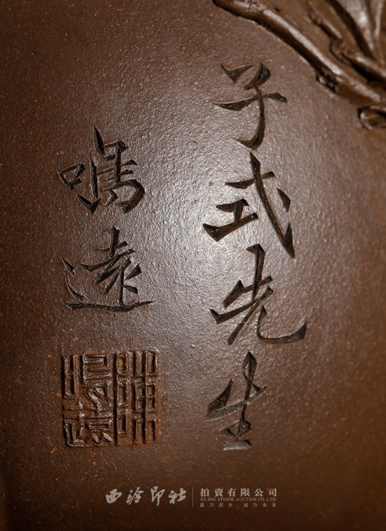 子式先生
鳴遠
陳鳴遠
西泠印社
拍賣有限公司
XILING YINSHE AUCTION CO.,LTD.